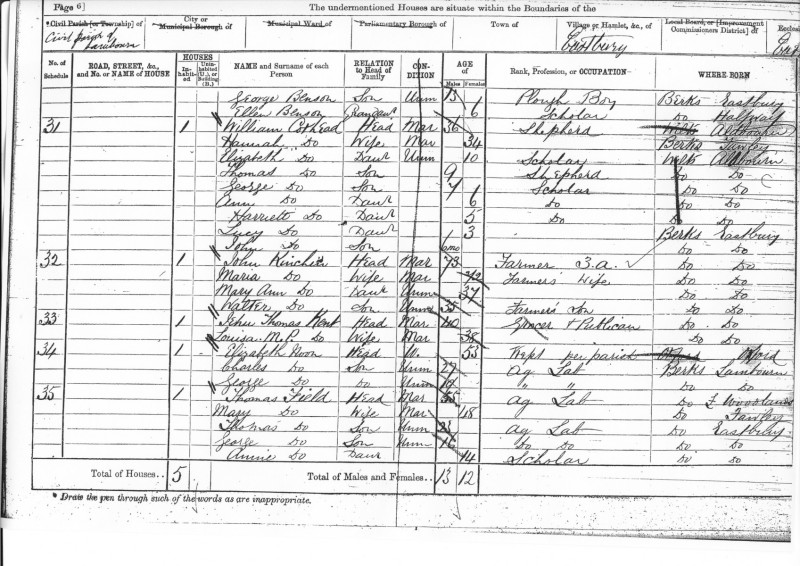 Page 6] The undermentioned Houses are situate within the Boundaries of the
*Civil Parish [or Township] of City or Municipal Borough of Municipal Ward of Parliamentary Borough of Town of Village or Hamlet, &c., of Local Board, or [Improvement Commissioners District] of Eccles
Civil Parish of Lambourn Eastbury
No. of Schedule ROAD, STREET, &c., and No. or NAME of HOUSE HOUSES Inhabited Uninhabited (U.), or Building (B.) NAME and Surname of each Person RELATION to Head of Family CONDITION AGE of Males Females Rank, Profession, or OCCUPATION WHERE BORN
George Benson Son Unm 13 Plough Boy Berks Eastbury
Ellen Benson 6 Scholar Do
31 1 William Head Mar 36 Shepherd
Hannah Do Wife Mar 34 Berks Fawley
Elizabeth Do Daur Unm 10 Scholar Wilts Aldbourn
Thomas Do Son 9 Shepherd Do Do
George Do Son 7 Scholar Do Do
Ann Do Daur 6 Do Do Do
Harriett Do Daur 5 Do Do Do
Lucy Do Daur 3 Berks Eastbury
John Do Son 6mo Do Do
32 1 John Head Mar 73 Farmer 3.a. Do Do
Maria Do Wife Mar Farmers' Wife Do Do
Mary Ann Do Daur Unm 37 Do Do
Walter Do Son Unm 35 Farmer's Son Do Do
33 1 Thomas Kent Head Mar 40 Grocer & Publican Do Do
Louisa M.P. Do Wife Mar 38 Do Do
34 1 Elizabeth Head W. 53 per parish Oxford
Charles Do Son Unm 27 Ag Lab Berks Lambourn
George Do Do Unm " " Do Do
35 1 Thomas Field Head Mar 55 Ag Lab Do Woodlands
Mary Do Wife Mar 48 Do Fawley
Thomas Do Son Unm Ag Lab Do Eastbury
George Do Son Unm 16 Do Do Do Do
Annie Do Daur 14 Scholar Do Do
Total of Houses.. 5 Total of Males and Females.. 13 12
* Draw the pen through such of the words as are inappropriate.